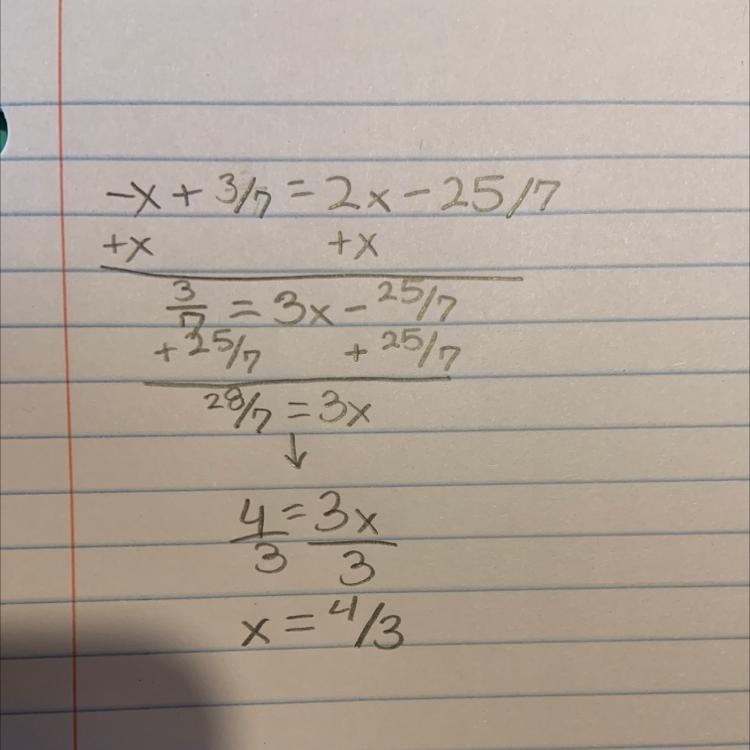 -x + 3/7 = 2x - 25/7
+x +x
3/7 = 3x - 25/7
+ 25/7 + 25/7
28/7 = 3x
↓
4 = 3x
3 3
x = 4/3